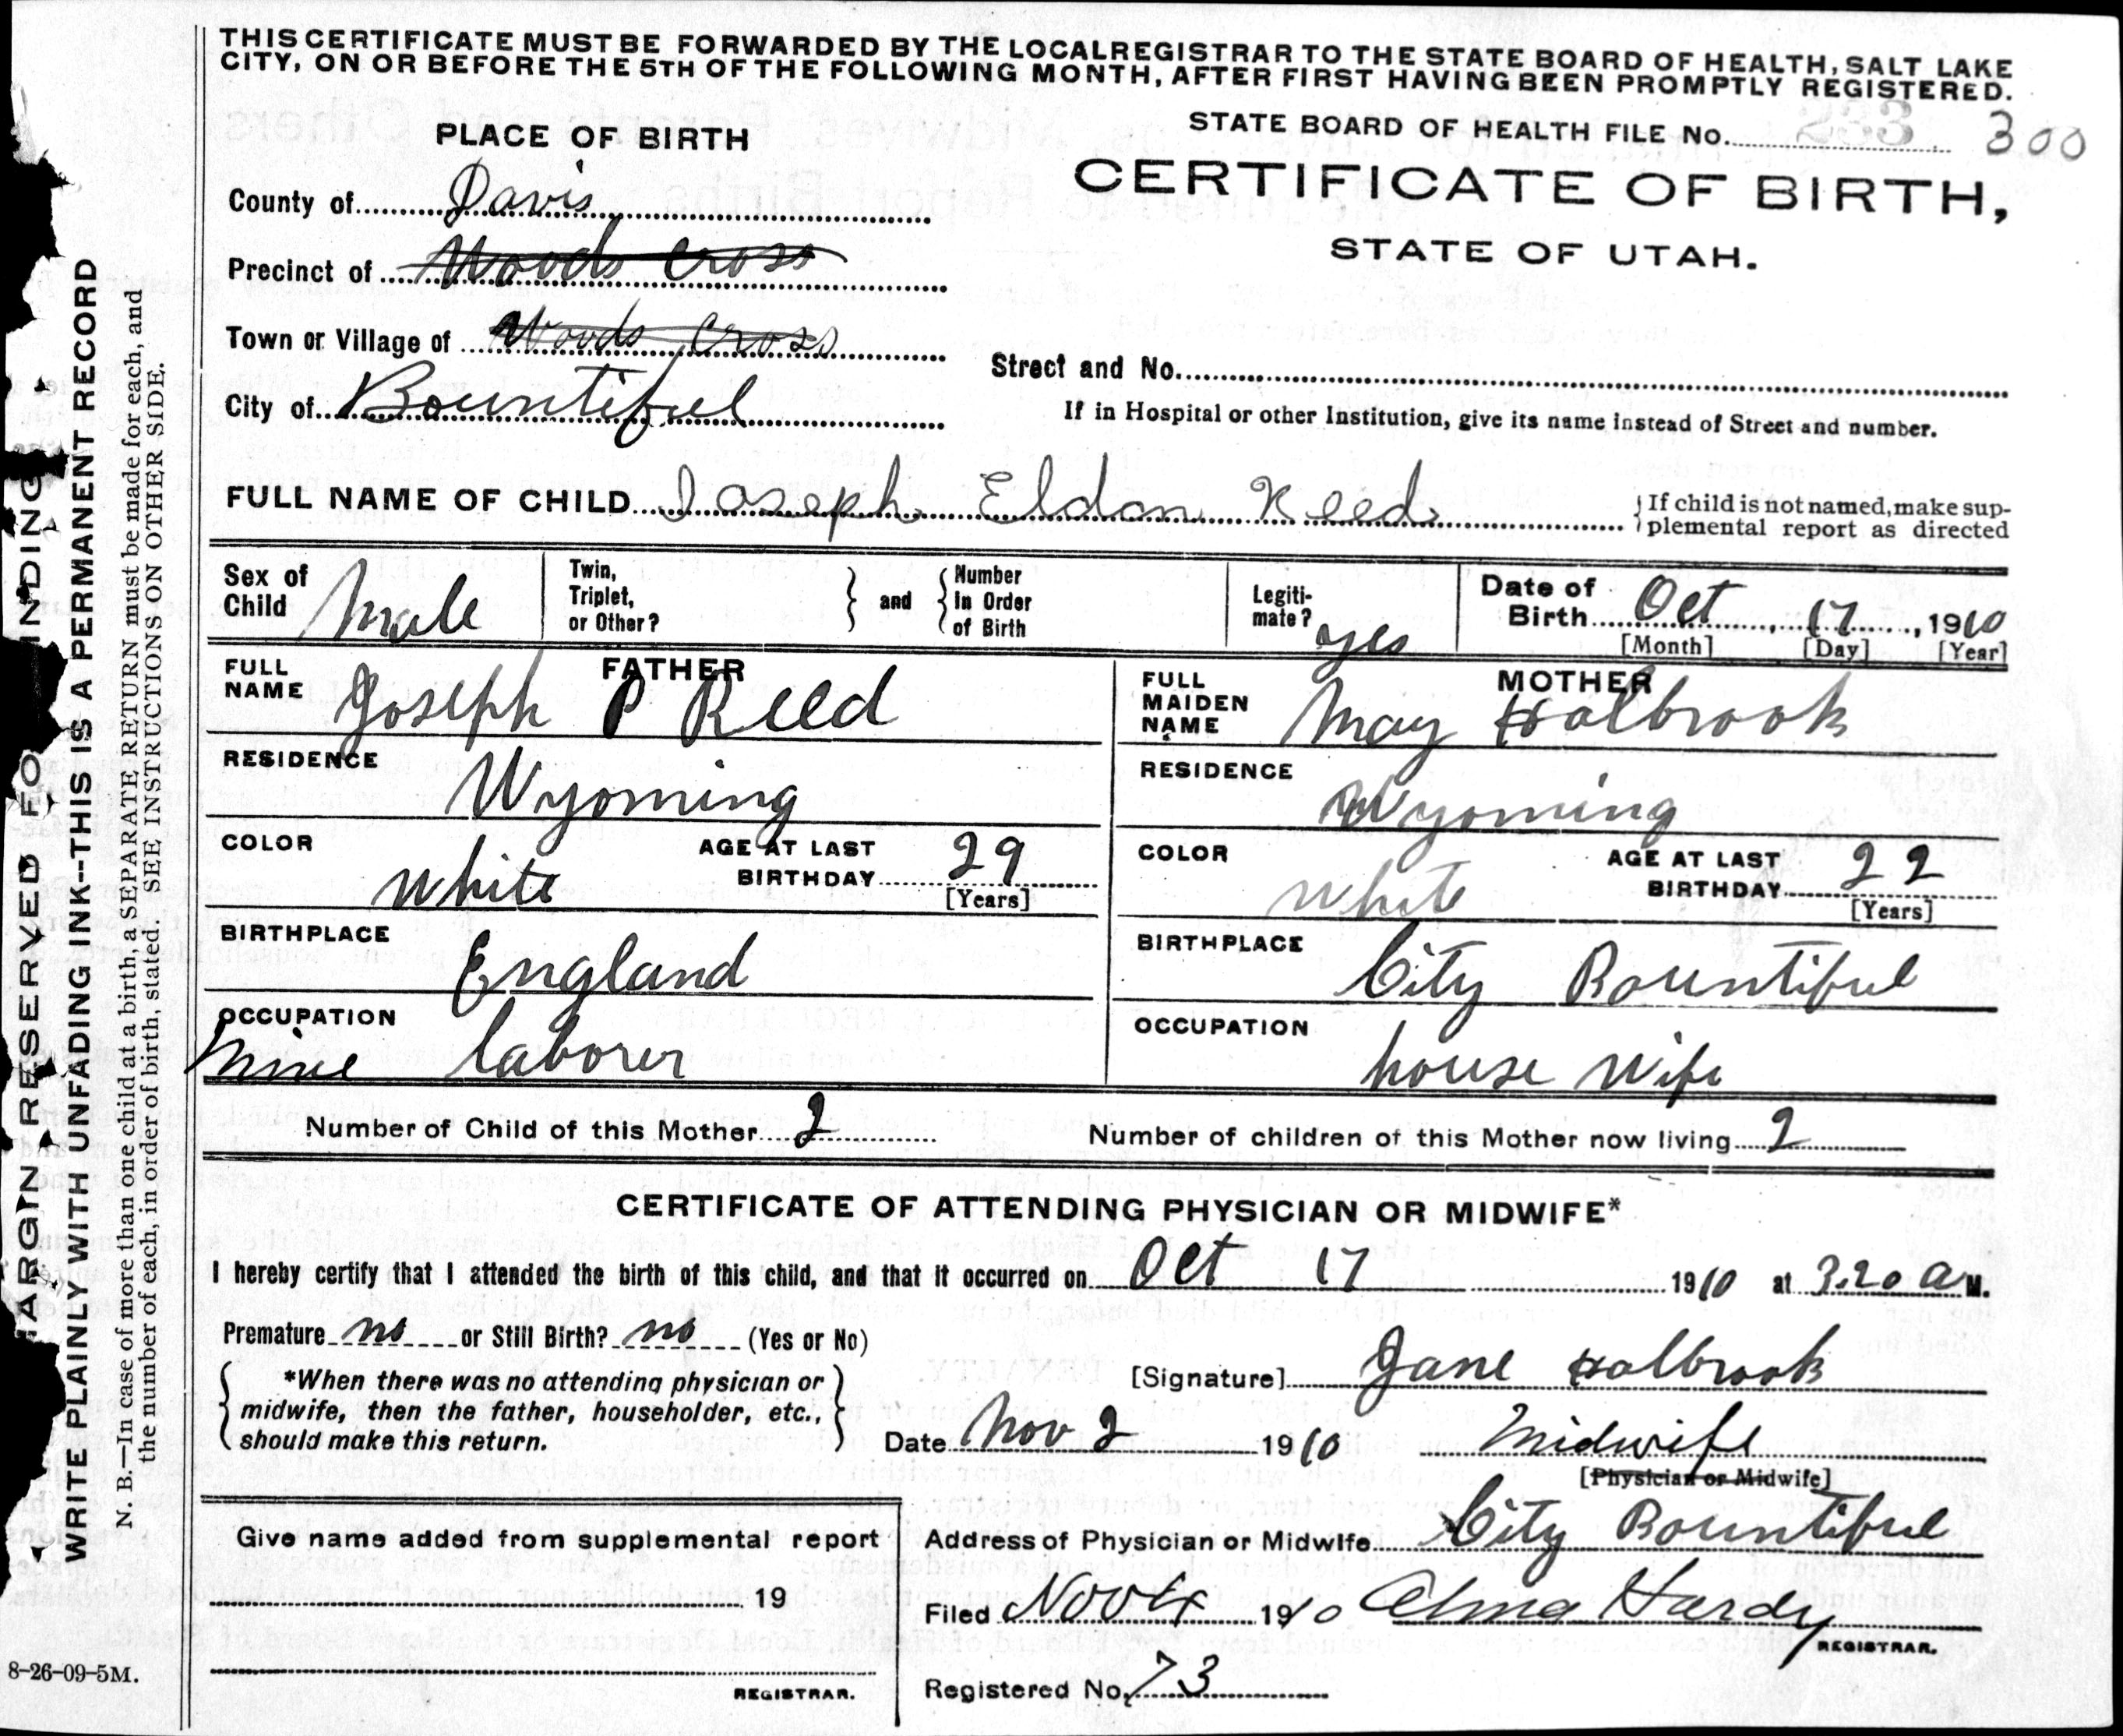 THIS CERTIFICATE MUST BE FORWARDED BY THE LOCAL REGISTRAR TO THE STATE BOARD OF HEALTH, SALT LAKE
CITY, ON OR BEFORE THE 5TH OF THE FOLLOWING MONTH, AFTER FIRST HAVING BEEN PROMPTLY REGISTERED.
PLACE OF BIRTH
STATE BOARD OF HEALTH FILE No. 233 300
CERTIFICATE OF BIRTH,
STATE OF UTAH.
County of Davis
Precinct of Woods Cross
Town or Village of Woods Cross
Street and No.
City of Bountiful
If in Hospital or other Institution, give its name instead of Street and number.
FULL NAME OF CHILD Joseph Eldon Reed
If child is not named, make sup-
plemental report as directed
Sex of Child Male
Twin, Triplet, or Other?
and
Number In Order of Birth
Legiti-mate? yes
Date of Birth Oct, 17, 1910
[Month] [Day] [Year]
FATHER
FULL NAME Joseph P Reed
RESIDENCE Wyoming
COLOR white
AGE AT LAST BIRTHDAY 29
[Years]
BIRTHPLACE England
OCCUPATION
Mine laborer
MOTHER
FULL MAIDEN NAME May Holbrook
RESIDENCE Wyoming
COLOR White
AGE AT LAST BIRTHDAY 22
[Years]
BIRTHPLACE City Bountiful
OCCUPATION
house Wife
Number of Child of this Mother 2
Number of children of this Mother now living 2
CERTIFICATE OF ATTENDING PHYSICIAN OR MIDWIFE*
I hereby certify that I attended the birth of this child, and that it occurred on Oct 17 1910 at 3.20 a M.
Premature no or Still Birth? no (Yes or No)
*When there was no attending physician or
midwife, then the father, householder, etc.,
should make this return.
[Signature] Jane Holbrook
Date Nov 2 1910 Midwife
[Physician or Midwife]
Give name added from supplemental report
19
REGISTRAR.
Address of Physician or Midwife City Bountiful
Filed Nov 4 1910 Alma Hardy
REGISTRAR.
Registered No. 73
8-26-09-5M.
MARGIN RESERVED FOR BINDING
WRITE PLAINLY WITH UNFADING INK--THIS IS A PERMANENT RECORD
N. B.—In case of more than one child at a birth, a SEPARATE RETURN must be made for each, and
the number of each, in order of birth, stated. SEE INSTRUCTIONS ON OTHER SIDE.